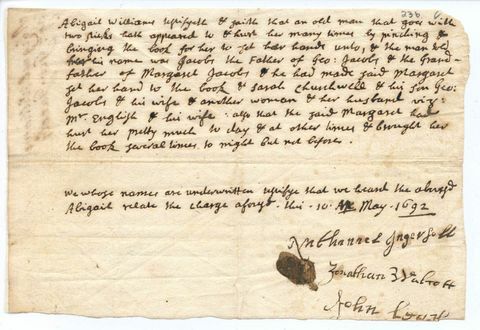 236
Abigail Williams testifyeth & saith that an old man that goes with
two sticks hath appeared to & hurt her many times by pinching &
bringing the book for her to set her hand unto, & the man told
her his name was Jacobs the Father of Geo: Jacobs & the Grand-
father of Margaret Jacobs & he had made said Margaret
set her hand to the book & Sarah Churchwell & his son Geo:
Jacobs & his wife & another woman & her husband viz:
Mr. English & his wife: also that the said Margaret had
hurt her pretty much to day & at other times & brought her
the book several times to night but not before.
we whose names are underwritten testifye that we heard the abovesd
Abigail relate the charge aforesd. this . 10. May . 1692
Nathanael Ingersoll
Jonathan Walcott
John